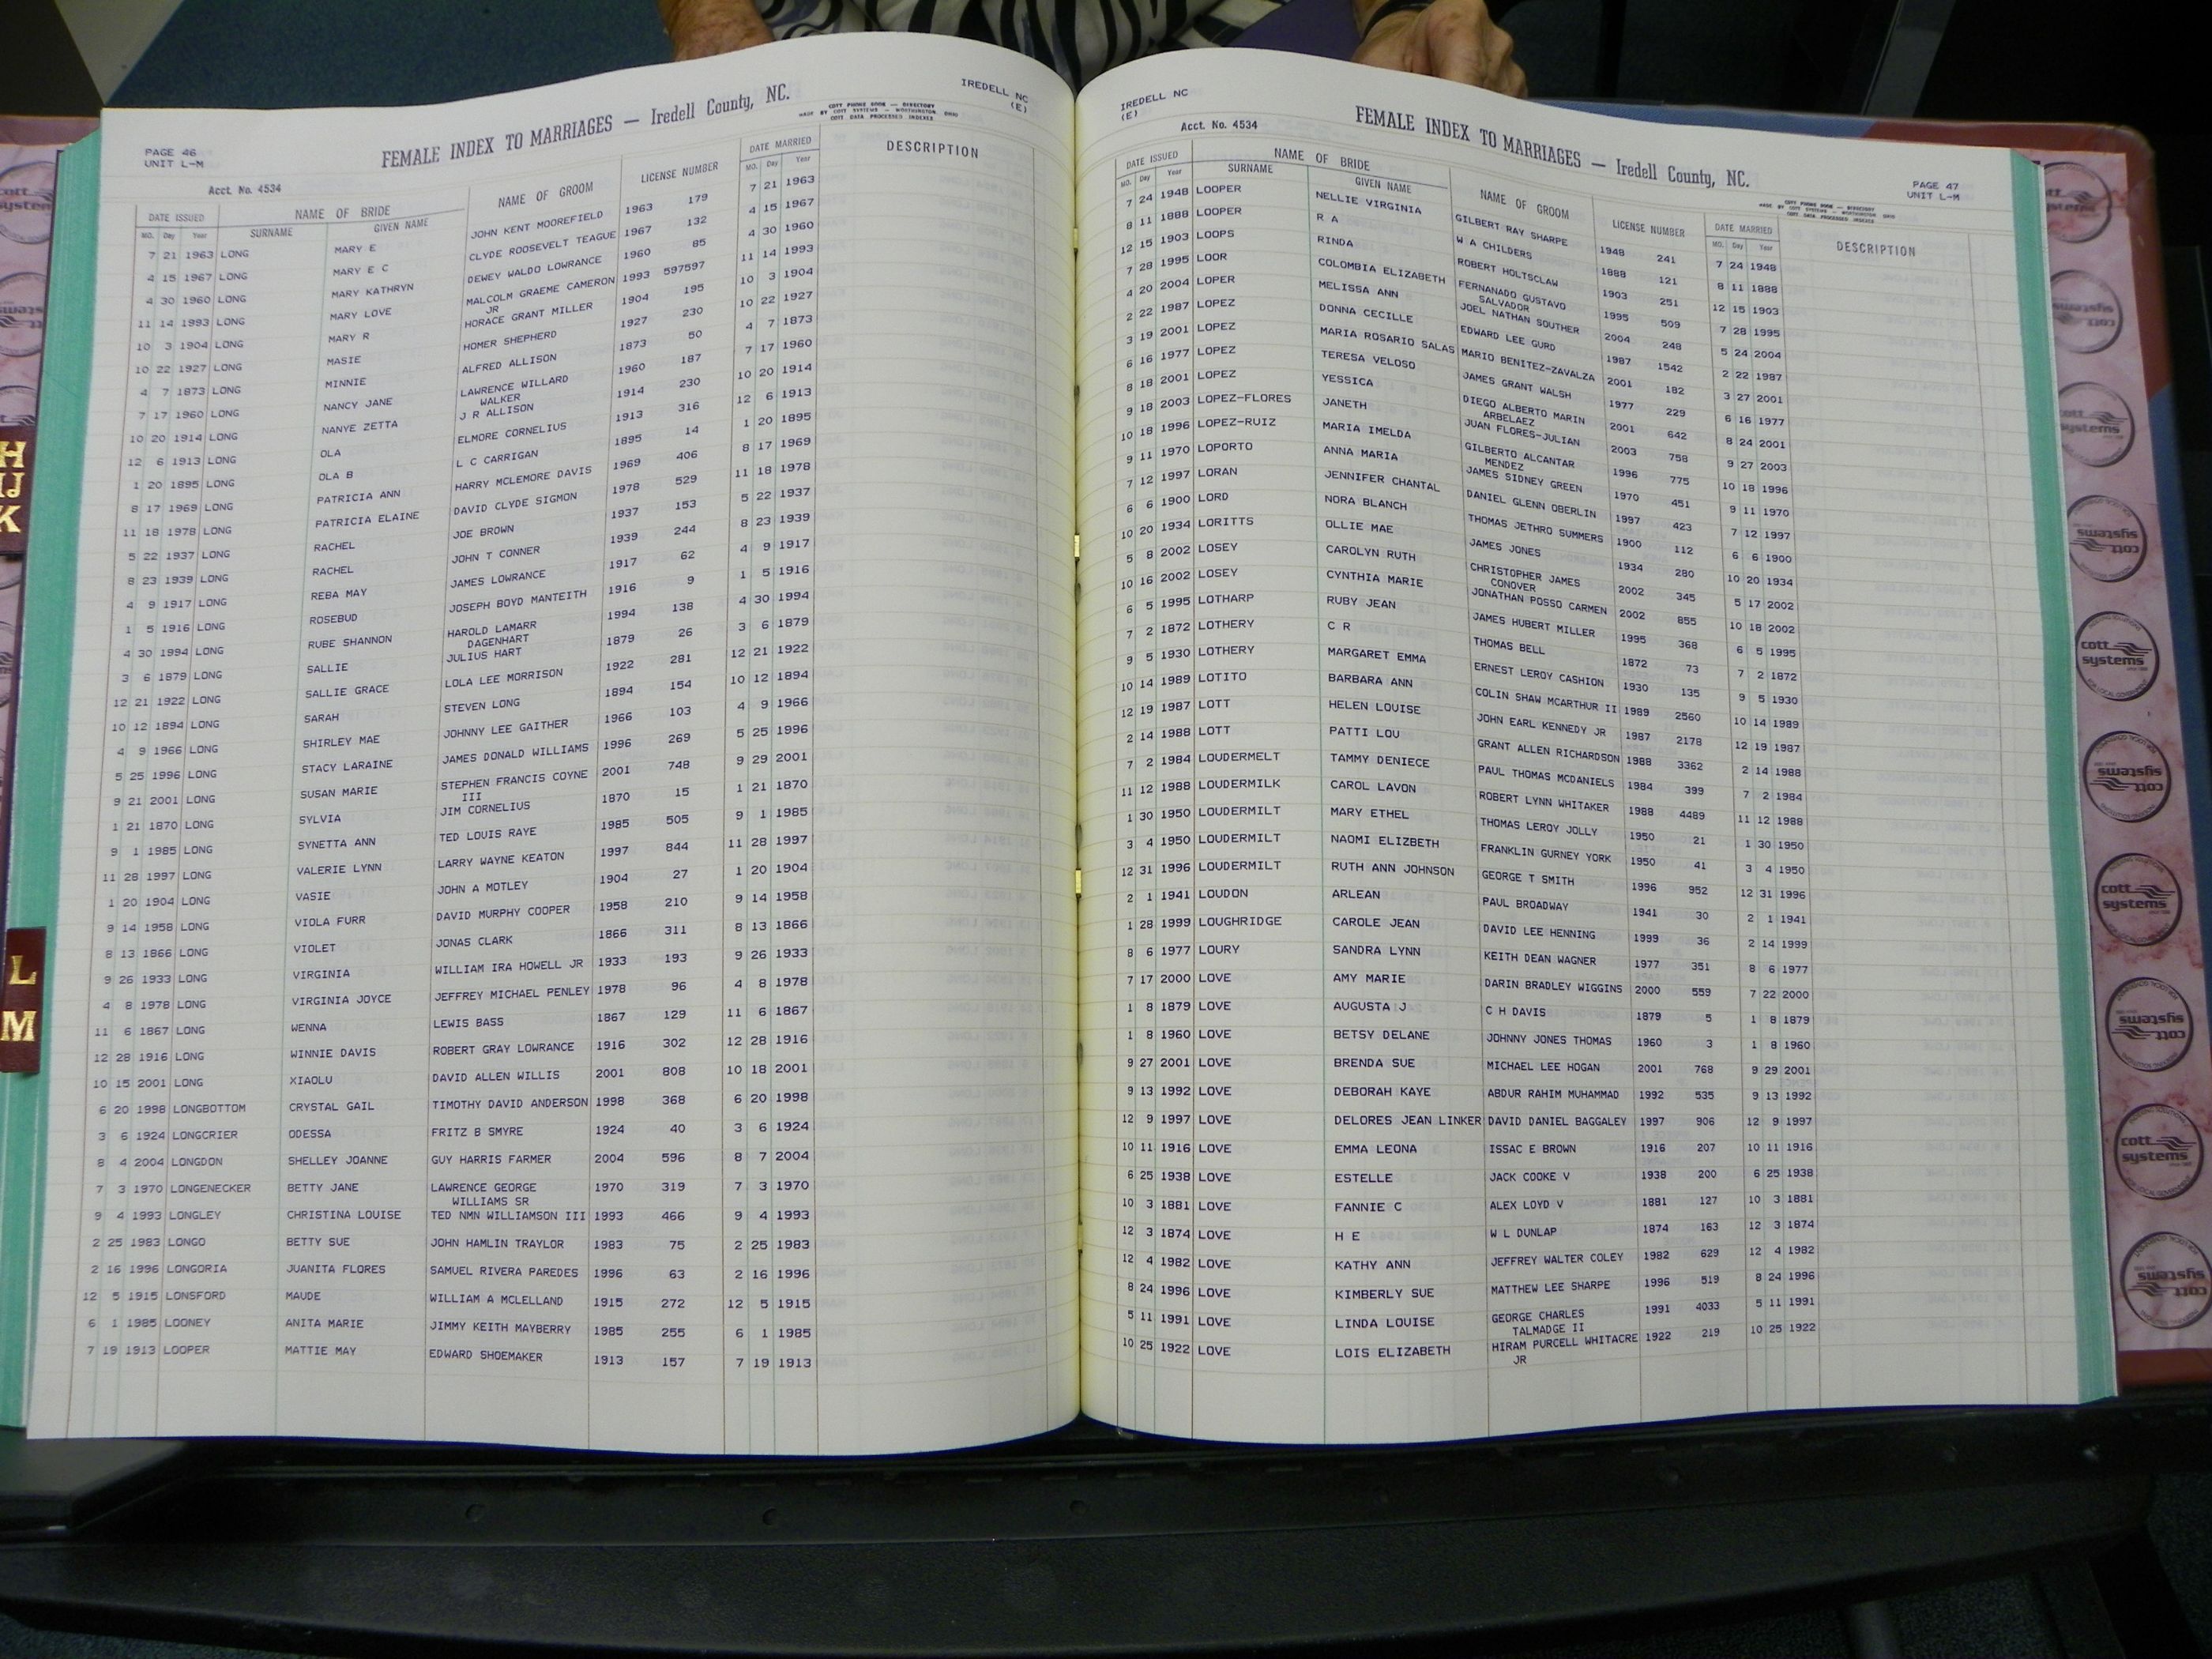 PAGE 46
UNIT L-M
FEMALE INDEX TO MARRIAGES — Iredell County, NC.
MADE BY COTT SYSTEMS — WORTHINGTON OHIO
COTT DATA PROCESSED INDEXES
IREDELL NC
(E)
Acct. No. 4534
DATE ISSUED NAME OF BRIDE NAME OF GROOM LICENSE NUMBER DATE MARRIED DESCRIPTION
MO. Day Year SURNAME GIVEN NAME MO. Day Year
7 21 1963 LONG MARY E JOHN KENT MOOREFIELD 1963 179 7 21 1963
4 15 1967 LONG MARY E C CLYDE ROOSEVELT TEAGUE 1967 132 4 15 1967
4 30 1960 LONG MARY KATHRYN DEWEY WALDO LOWRANCE 1960 85 4 30 1960
11 14 1993 LONG MARY LOVE MALCOLM GRAEME CAMERON 1993 597597 11 14 1993
JR
10 3 1904 LONG MARY R HORACE GRANT MILLER 1904 195 10 3 1904
10 22 1927 LONG MASIE HOMER SHEPHERD 1927 230 10 22 1927
4 7 1873 LONG MINNIE ALFRED ALLISON 1873 50 4 7 1873
7 17 1960 LONG NANCY JANE LAWRENCE WILLARD 1960 187 7 17 1960
WALKER
10 20 1914 LONG NANYE ZETTA J R ALLISON 1914 230 10 20 1914
12 6 1913 LONG OLA ELMORE CORNELIUS 1913 316 12 6 1913
1 20 1895 LONG OLA B L C CARRIGAN 1895 14 1 20 1895
8 17 1969 LONG PATRICIA ANN HARRY MCLEMORE DAVIS 1969 406 8 17 1969
11 18 1978 LONG PATRICIA ELAINE DAVID CLYDE SIGMON 1978 529 11 18 1978
5 22 1937 LONG RACHEL JOE BROWN 1937 153 5 22 1937
8 23 1939 LONG RACHEL JOHN T CONNER 1939 244 8 23 1939
4 9 1917 LONG REBA MAY JAMES LOWRANCE 1917 62 4 9 1917
1 5 1916 LONG ROSEBUD JOSEPH BOYD MANTEITH 1916 9 1 5 1916
4 30 1994 LONG RUBE SHANNON HAROLD LAMARR 1994 138 4 30 1994
DAGENHART
3 6 1879 LONG SALLIE JULIUS HART 1879 26 3 6 1879
12 21 1922 LONG SALLIE GRACE LOLA LEE MORRISON 1922 281 12 21 1922
10 12 1894 LONG SARAH STEVEN LONG 1894 154 10 12 1894
4 9 1966 LONG SHIRLEY MAE JOHNNY LEE GAITHER 1966 103 4 9 1966
5 25 1996 LONG STACY LARAINE JAMES DONALD WILLIAMS 1996 269 5 25 1996
9 21 2001 LONG SUSAN MARIE STEPHEN FRANCIS COYNE 2001 748 9 29 2001
III
1 21 1870 LONG SYLVIA JIM CORNELIUS 1870 15 1 21 1870
9 1 1985 LONG SYNETTA ANN TED LOUIS RAYE 1985 505 9 1 1985
11 28 1997 LONG VALERIE LYNN LARRY WAYNE KEATON 1997 844 11 28 1997
1 20 1904 LONG VASIE JOHN A MOTLEY 1904 27 1 20 1904
9 14 1958 LONG VIOLA FURR DAVID MURPHY COOPER 1958 210 9 14 1958
8 13 1866 LONG VIOLET JONAS CLARK 1866 311 8 13 1866
9 26 1933 LONG VIRGINIA WILLIAM IRA HOWELL JR 1933 193 9 26 1933
4 8 1978 LONG VIRGINIA JOYCE JEFFREY MICHAEL PENLEY 1978 96 4 8 1978
11 6 1867 LONG WENNA LEWIS BASS 1867 129 11 6 1867
12 28 1916 LONG WINNIE DAVIS ROBERT GRAY LOWRANCE 1916 302 12 28 1916
10 15 2001 LONG XIAOLU DAVID ALLEN WILLIS 2001 808 10 18 2001
6 20 1998 LONGBOTTOM CRYSTAL GAIL TIMOTHY DAVID ANDERSON 1998 368 6 20 1998
3 6 1924 LONGCRIER ODESSA FRITZ B SMYRE 1924 40 3 6 1924
8 4 2004 LONGDON SHELLEY JOANNE GUY HARRIS FARMER 2004 596 8 7 2004
7 3 1970 LONGENECKER BETTY JANE LAWRENCE GEORGE 1970 319 7 3 1970
WILLIAMS SR
9 4 1993 LONGLEY CHRISTINA LOUISE TED NMN WILLIAMSON III 1993 466 9 4 1993
2 25 1983 LONGO BETTY SUE JOHN HAMLIN TRAYLOR 1983 75 2 25 1983
2 16 1996 LONGORIA JUANITA FLORES SAMUEL RIVERA PAREDES 1996 63 2 16 1996
12 5 1915 LONSFORD MAUDE WILLIAM A MCLELLAND 1915 272 12 5 1915
6 1 1985 LOONEY ANITA MARIE JIMMY KEITH MAYBERRY 1985 255 6 1 1985
7 19 1913 LOOPER MATTIE MAY EDWARD SHOEMAKER 1913 157 7 19 1913
IREDELL NC
(E)
Acct. No. 4534
FEMALE INDEX TO MARRIAGES — Iredell County, NC.
PAGE 47
UNIT L-M
DATE ISSUED NAME OF BRIDE NAME OF GROOM LICENSE NUMBER DATE MARRIED DESCRIPTION
MO. Day Year SURNAME GIVEN NAME MO. Day Year
7 24 1948 LOOPER NELLIE VIRGINIA GILBERT RAY SHARPE 1948 241 7 24 1948
8 11 1888 LOOPER R A W A CHILDERS 1888 121 8 11 1888
12 15 1903 LOOPS RINDA ROBERT HOLTSCLAW 1903 251 12 15 1903
7 28 1995 LOOR COLOMBIA ELIZABETH FERNANADO GUSTAVO 1995 509 7 28 1995
SALVADOR
4 20 2004 LOPER MELISSA ANN JOEL NATHAN SOUTHER 2004 248 5 24 2004
2 22 1987 LOPEZ DONNA CECILLE EDWARD LEE GURD 1987 1542 2 22 1987
3 19 2001 LOPEZ MARIA ROSARIO SALAS MARIO BENITEZ-ZAVALZA 2001 182 3 27 2001
6 16 1977 LOPEZ TERESA VELOSO JAMES GRANT WALSH 1977 229 6 16 1977
8 18 2001 LOPEZ YESSICA DIEGO ALBERTO MARIN 2001 642 8 24 2001
ARBELAEZ
9 18 2003 LOPEZ-FLORES JANETH JUAN FLORES-JULIAN 2003 758 9 27 2003
10 18 1996 LOPEZ-RUIZ MARIA IMELDA GILBERTO ALCANTAR 1996 775 10 18 1996
MENDEZ
9 11 1970 LOPORTO ANNA MARIA JAMES SIDNEY GREEN 1970 451 9 11 1970
7 12 1997 LORAN JENNIFER CHANTAL DANIEL GLENN OBERLIN 1997 423 7 12 1997
6 6 1900 LORD NORA BLANCH THOMAS JETHRO SUMMERS 1900 112 6 6 1900
10 20 1934 LORITTS OLLIE MAE JAMES JONES 1934 280 10 20 1934
5 8 2002 LOSEY CAROLYN RUTH CHRISTOPHER JAMES 2002 345 5 17 2002
CONOVER
10 16 2002 LOSEY CYNTHIA MARIE JONATHAN POSSO CARMEN 2002 855 10 18 2002
6 5 1995 LOTHARP RUBY JEAN JAMES HUBERT MILLER 1995 368 6 5 1995
7 2 1872 LOTHERY C R THOMAS BELL 1872 73 7 2 1872
9 5 1930 LOTHERY MARGARET EMMA ERNEST LEROY CASHION 1930 135 9 5 1930
10 14 1989 LOTITO BARBARA ANN COLIN SHAW MCARTHUR II 1989 2560 10 14 1989
12 19 1987 LOTT HELEN LOUISE JOHN EARL KENNEDY JR 1987 2178 12 19 1987
2 14 1988 LOTT PATTI LOU GRANT ALLEN RICHARDSON 1988 3362 2 14 1988
7 2 1984 LOUDERMELT TAMMY DENIECE PAUL THOMAS MCDANIELS 1984 399 7 2 1984
11 12 1988 LOUDERMILK CAROL LAVON ROBERT LYNN WHITAKER 1988 4489 11 12 1988
1 30 1950 LOUDERMILT MARY ETHEL THOMAS LEROY JOLLY 1950 21 1 30 1950
3 4 1950 LOUDERMILT NAOMI ELIZBETH FRANKLIN GURNEY YORK 1950 41 3 4 1950
12 31 1996 LOUDERMILT RUTH ANN JOHNSON GEORGE T SMITH 1996 952 12 31 1996
2 1 1941 LOUDON ARLEAN PAUL BROADWAY 1941 30 2 1 1941
1 28 1999 LOUGHRIDGE CAROLE JEAN DAVID LEE HENNING 1999 36 2 14 1999
8 6 1977 LOURY SANDRA LYNN KEITH DEAN WAGNER 1977 351 8 6 1977
7 17 2000 LOVE AMY MARIE DARIN BRADLEY WIGGINS 2000 559 7 22 2000
1 8 1879 LOVE AUGUSTA J C H DAVIS 1879 5 1 8 1879
1 8 1960 LOVE BETSY DELANE JOHNNY JONES THOMAS 1960 3 1 8 1960
9 27 2001 LOVE BRENDA SUE MICHAEL LEE HOGAN 2001 768 9 29 2001
9 13 1992 LOVE DEBORAH KAYE ABDUR RAHIM MUHAMMAD 1992 535 9 13 1992
12 9 1997 LOVE DELORES JEAN LINKER DAVID DANIEL BAGGALEY 1997 906 12 9 1997
10 11 1916 LOVE EMMA LEONA ISSAC E BROWN 1916 207 10 11 1916
6 25 1938 LOVE ESTELLE JACK COOKE V 1938 200 6 25 1938
10 3 1881 LOVE FANNIE C ALEX LOYD V 1881 127 10 3 1881
12 3 1874 LOVE H E W L DUNLAP 1874 163 12 3 1874
12 4 1982 LOVE KATHY ANN JEFFREY WALTER COLEY 1982 629 12 4 1982
8 24 1996 LOVE KIMBERLY SUE MATTHEW LEE SHARPE 1996 519 8 24 1996
5 11 1991 LOVE LINDA LOUISE GEORGE CHARLES 1991 4033 5 11 1991
TALMADGE II
10 25 1922 LOVE LOIS ELIZABETH HIRAM PURCELL WHITACRE 1922 219 10 25 1922
JR
H
IJ
K
L
M
cott
systems